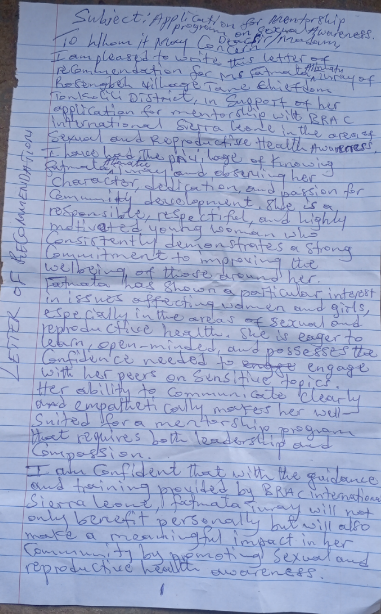 Subject: Application for Mentorship
program, on Sexual Awareness.
To Whom it May Concern Sir/Madam,
I am pleased to write this letter of
recommendation for Ms Fatmata
of
Rosengbeh Village Tane Chiefdom
Tonkolili District, in Support of her
application for mentorship with BRAC
International Sierra Leone in the area of
Sexual and Reproductive Health Awareness.
I have had the privilage of Knowing
Fatmata and observing her
Character, dedication, and passion for
Community development. She is a
responsible, respectful, and highly
motivated young woman who
Consistently demonstrates a strong
Commitment to improving the
wellbeing of those around her.
Fatmata has shown a particular interest
in issues affecting women and girls,
especially in the areas of sexual and
reproductive health. She is eager to
learn, open-minded, and possesses the
Confidence needed to engage
with her peers on Sensitive topics.
Her ability to Communicate Clearly
and empathetically makes her well-
Suited for a mentorship program
that requires both leadership and
Compassion.
I am Confident that with the guidance
and training provided by BRAC international
Sierra Leone, Fatmata will not
only benefit personally but will also
make a meaningful impact in her
Community by promoting Sexual and
reproductive health awareness.
1
LETTER OF RECOMMENDATION